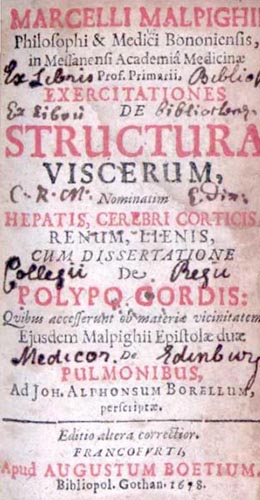 MARCELLI MALPIGHII
Philosophi & Medici Bononiensis,
in Messanensi Academiâ Medicinæ
Ex Libris Prof. Primarii, Biblioth
EXERCITATIONES
DE
STRUCTURA
VISCERUM,
C. R. M. Nominatim Edin:
HEPATIS, CEREBRI CORTICIS,
RENUM, LIENIS,
CUM DISSERTATIONE
Collegii De Regii
POLYPO CORDIS:
Quibus accesserunt ob materiæ vicinitatem
Ejusdem Malpighii Epistolæ duæ
Medicor. De Edinburg
PULMONIBUS,
Ad JOH. ALPHONSUM BORELLUM,
perscriptæ.
Editio altera correctior.
FRANCOFURTI,
Apud AUGUSTUM BOETIUM,
Bibliopol. Gothan. 1678.